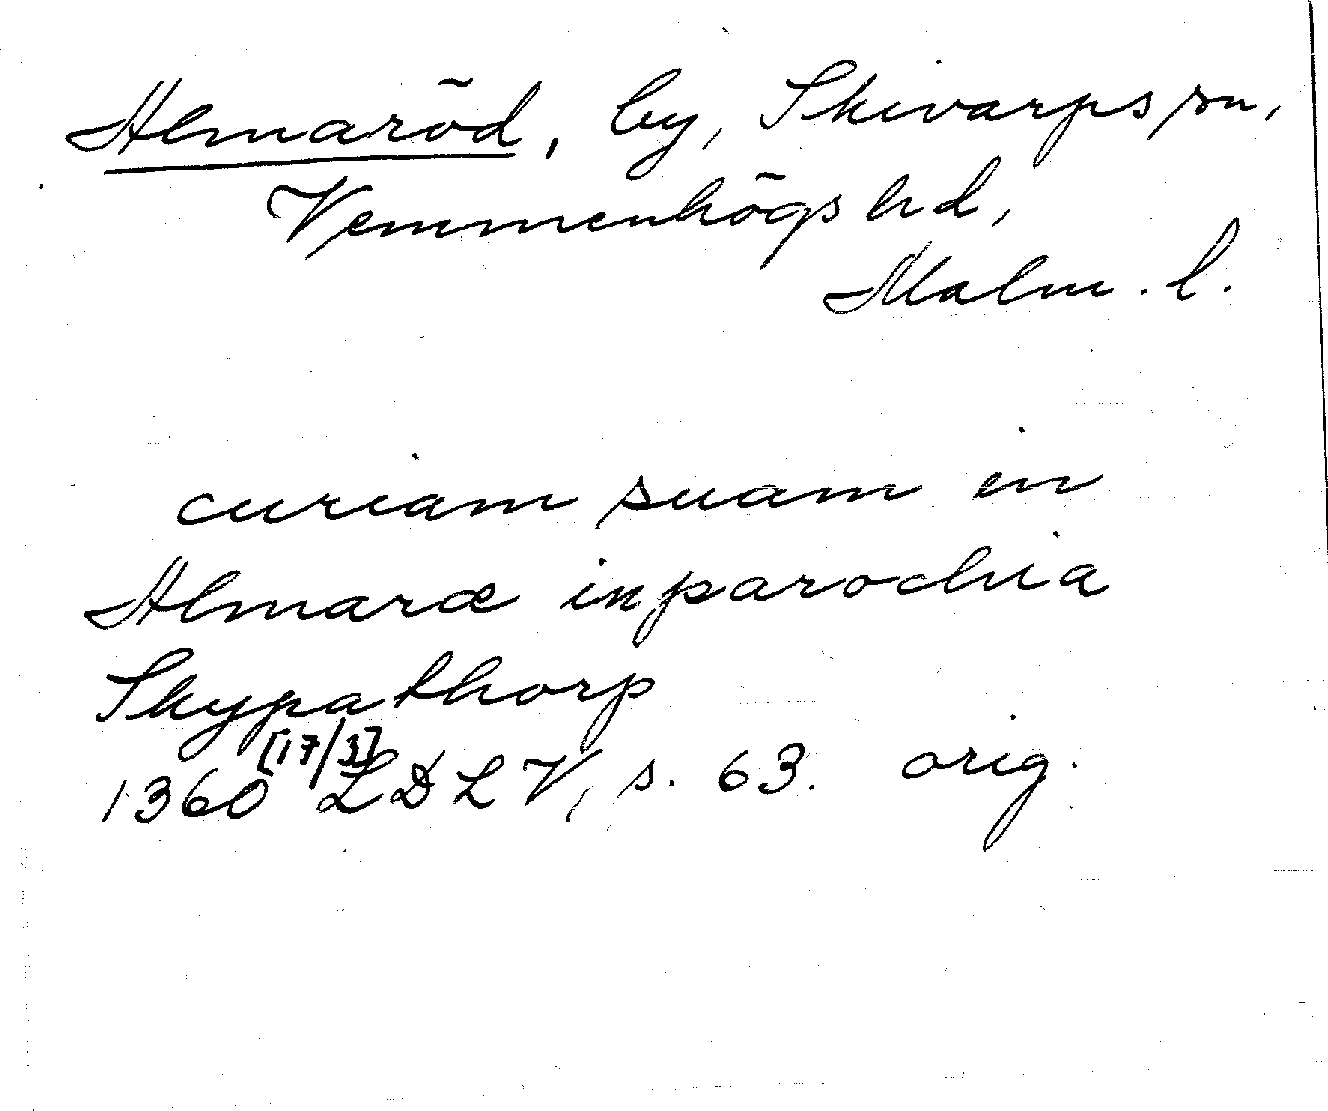 Almaröd, by, Skivarps sn,
Vemmenhögs hd,
Malm. l.
curiam suam in
Almaræ in parochia
Skypathorp
[17/3]
1360 LDL V, s. 63. orig.